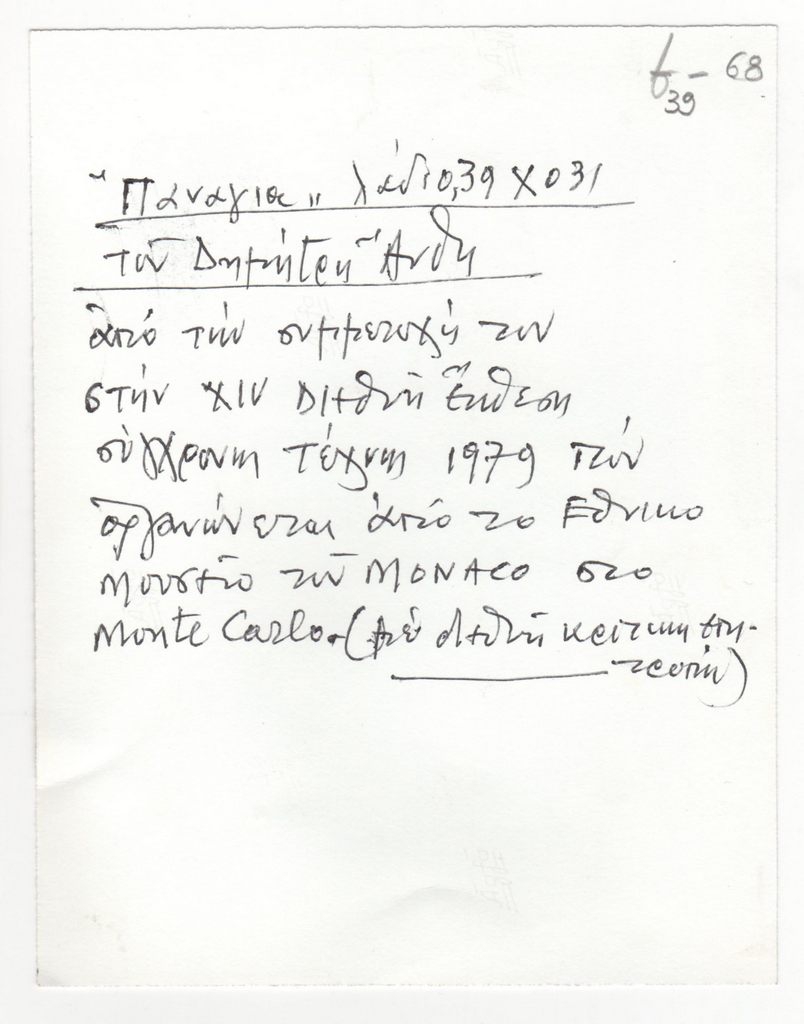 6 - 68
39
"Παναγια" λάδι 0,39 Χ 031
τοῦ Δημήτρη Ἀνθη
ἀπό τήν συμμετοχή του
στήν XIV Διεθνή Ἔκθεση
σύγχρονης τέχνης 1979 πού
ὀργανώνεται ἀπό το Εθνικο
Μουσείο τοῦ MONACO στο
Monte Carlo. (μέ διεθνή κριτική επι-
τροπή)